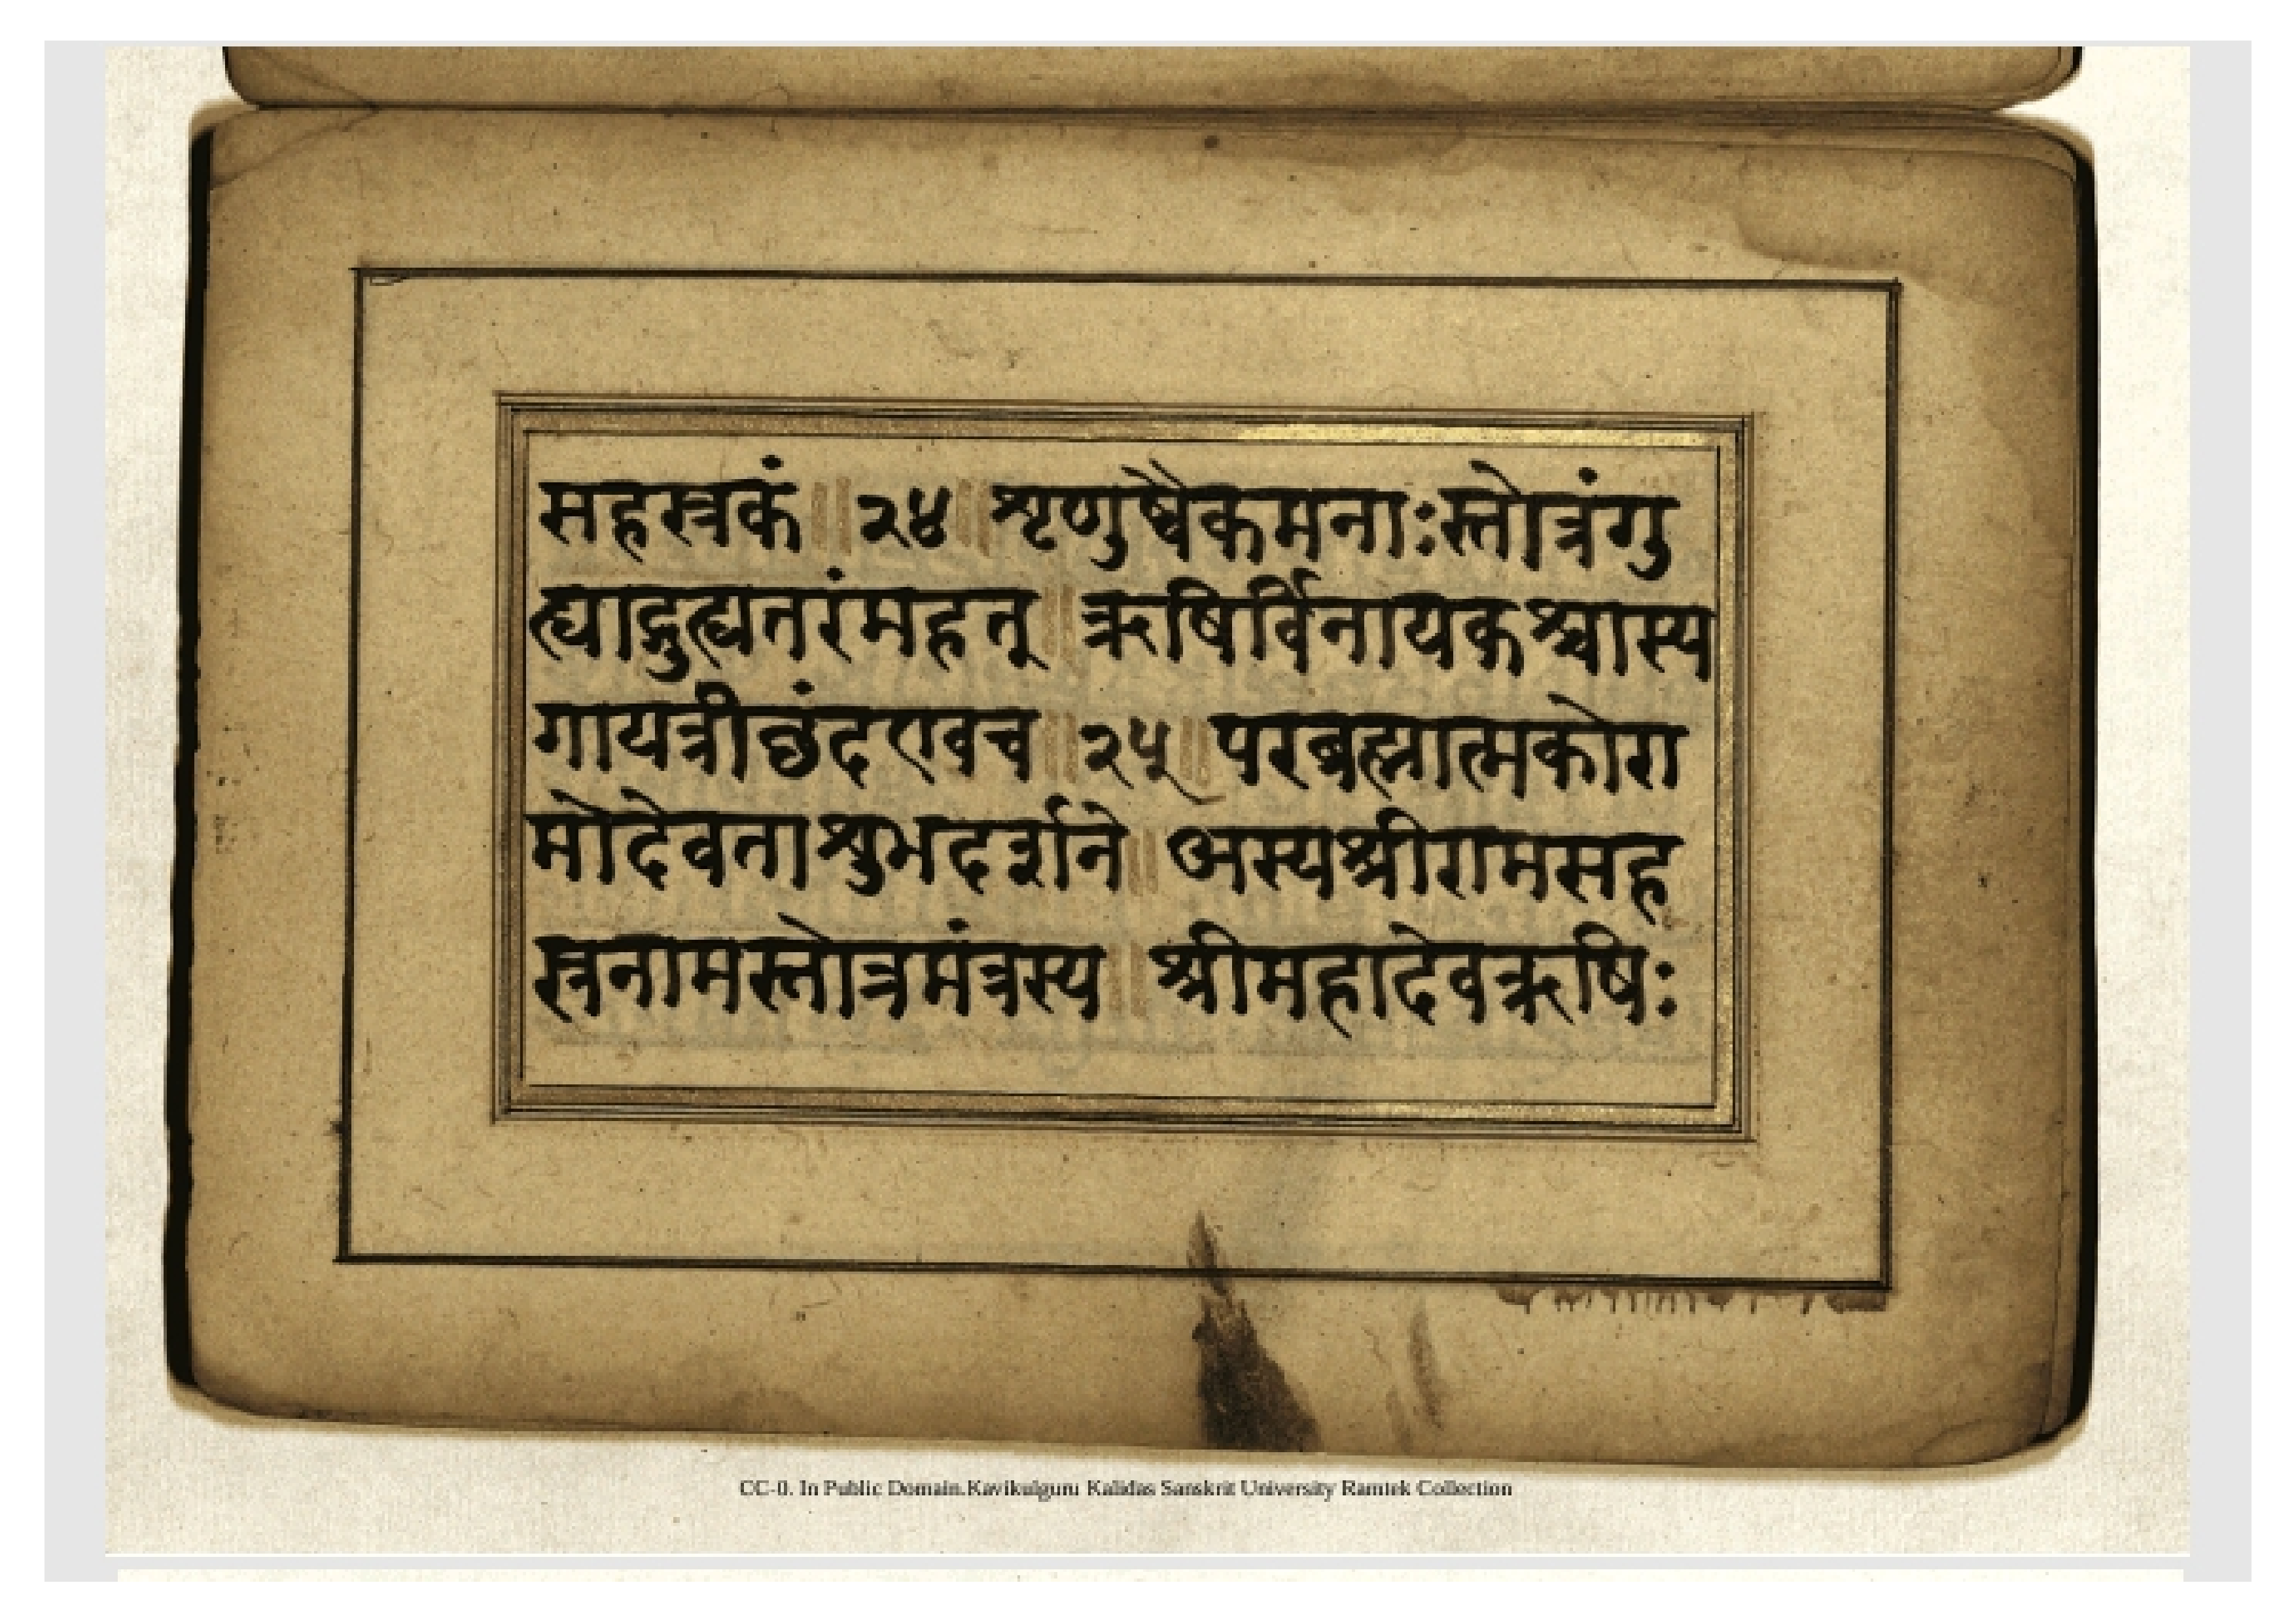 सहस्त्रकं ॥ २४ ॥ शृणुष्वैकमनाःस्तोत्रंगु
ह्याद्गुह्यतरंमहत् ॥ ऋषिर्विनायकश्चास्य
गायत्रीछंदएवच ॥ २५ ॥ परब्रह्मात्मकोरा
मोदेवताशुभदर्शने ॥ अस्यश्रीरामसह
स्त्रनामस्तोत्रमंत्रस्य ॥ श्रीमहादेवऋषिः
CC-0. In Public Domain.Kavikulguru Kalidas Sanskrit University Ramtek Collection